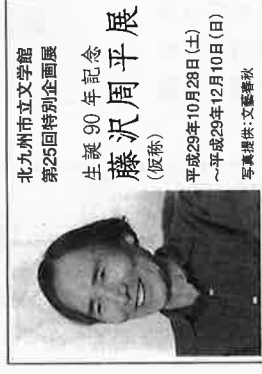 北九州市立文学館
第25回特別企画展
生誕90年記念
藤沢周平展
(仮称)
平成29年10月28日(土)
~平成29年12月10日(日)
写真提供:文藝春秋